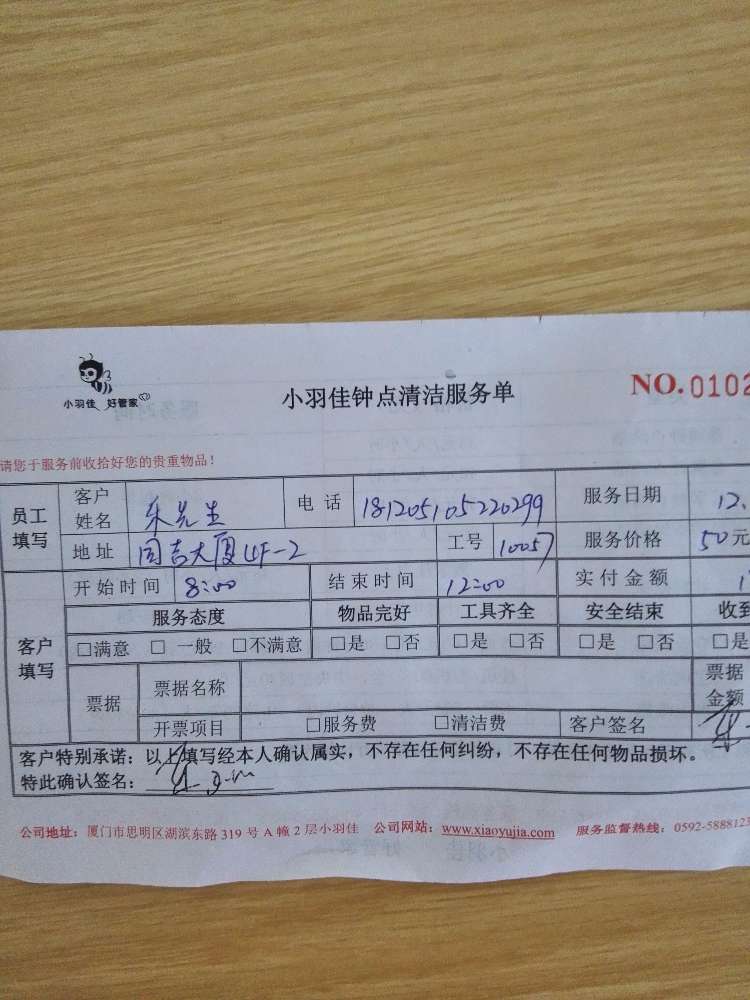 小羽佳 好管家
小羽佳钟点清洁服务单
NO.0102
请您于服务前收拾好您的贵重物品！
员工填写 客户姓名 朱先生 电话 18120510522 0299 服务日期 12.
地址 国吉大厦4F-2 工号 10057 服务价格 50元
客户填写 开始时间 8:00 结束时间 12:00 实付金额 1
服务态度 物品完好 工具齐全 安全结束 收到
□满意 □一般 □不满意 □是 □否 □是 □否 □是 □否 □是
票据 票据名称 票据金额
开票项目 □服务费 □清洁费 客户签名
客户特别承诺：以上填写经本人确认属实，不存在任何纠纷，不存在任何物品损坏。
特此确认签名：
公司地址：厦门市思明区湖滨东路 319 号 A 幢 2 层小羽佳 公司网站：www.xiaoyujia.com 服务监督热线：0592-5888123